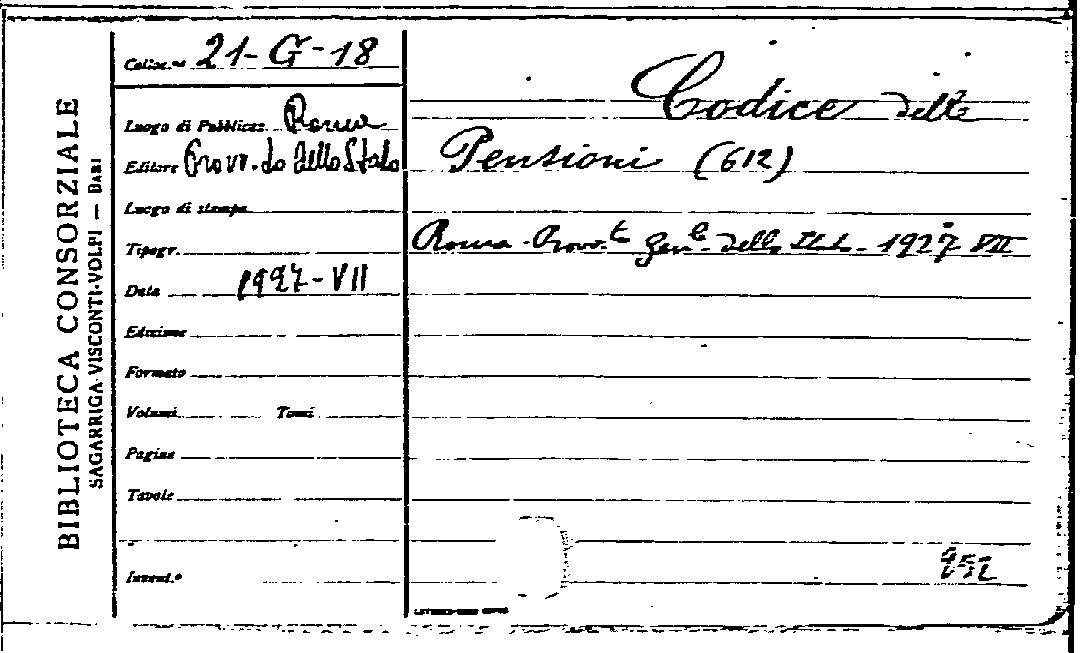 BIBLIOTECA CONSORZIALE
SAGARRIGA VISCONTI-VOLPI — BARI
Colloc.ne 21-G-18
Luogo di Pubblicaz. Roma
Editore Provv.to dello Stato
Luogo di stampa
Tipogr.
Data 1927-VII
Edizione
Formato
Volumi Tomi
Pagine
Tavole
Invent.o
Codice delle
Pensioni (612)
Roma - Provv.to Gen.le dello Stato - 1927 VII